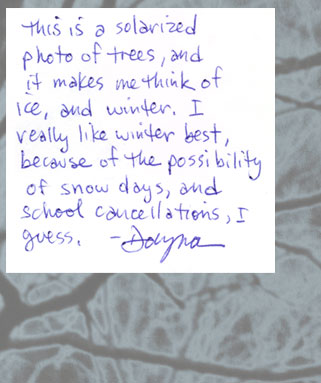 This is a solarized
photo of trees, and
it makes me think of
ice, and winter. I
really like winter best,
because of the possibility
of snow days, and
school cancellations, I
guess. -Dayna